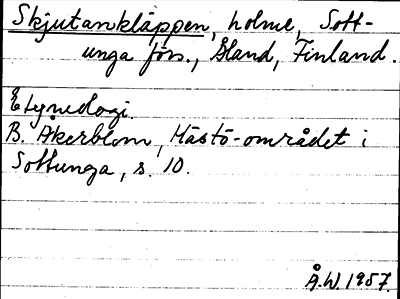 Skjutankläppen, holme, Sott-
unga förs., Åland, Finland.
Etymologi.
B. Åkerblom, Hästö-området i
Sottunga, s. 10.
Å.W. 1957.